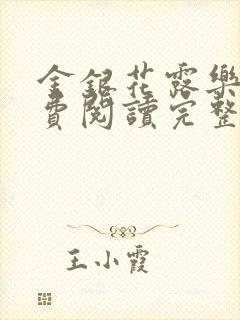 金銀花露樂
費閱讀完整
王小霞